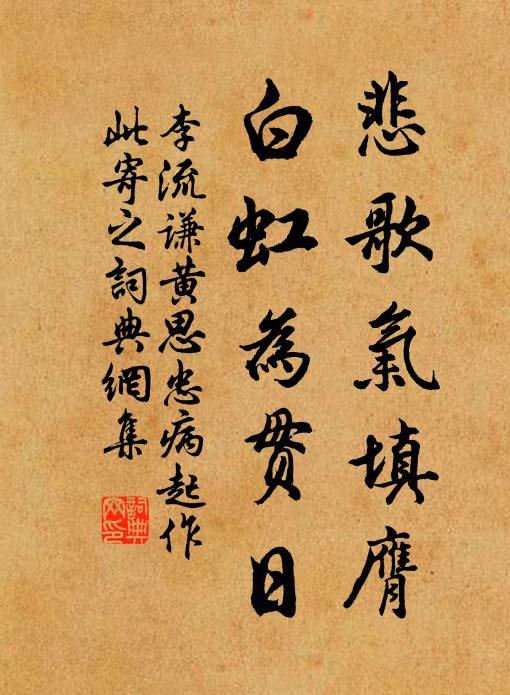 悲歌氣填膺
白虹為貫日
李流謙黃思忠病起作
此寄之詞典網集
詞典
网印